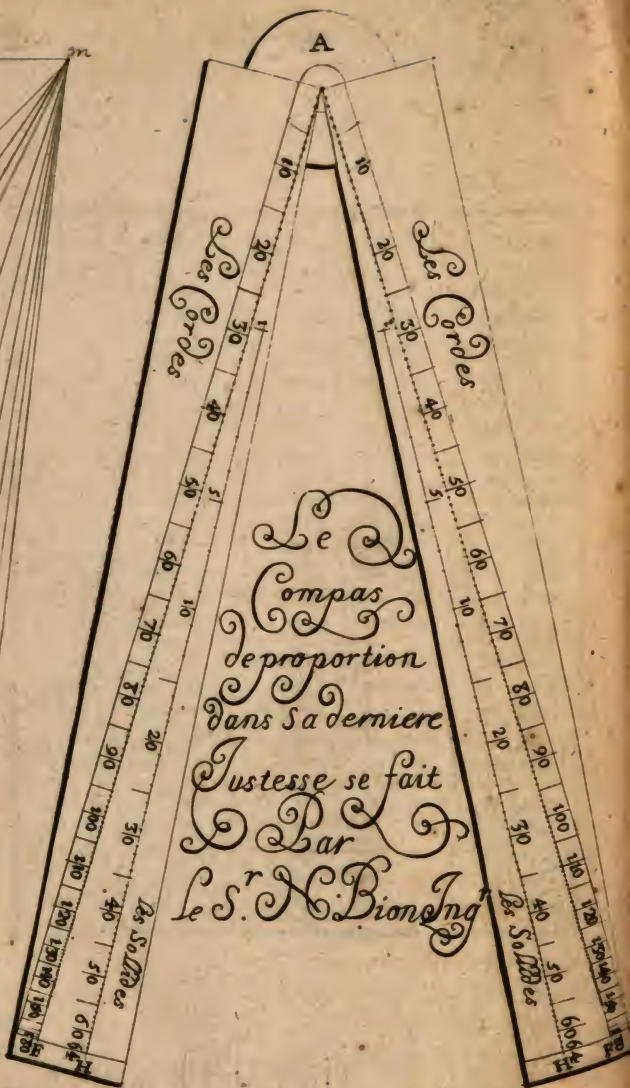 m
A
Les Cordes
10
20
30
40
50
60
70
80
90
100
110
120
130
140
180
1
5
10
20
30
40
50
60
64
Les Sollides
Les Cordes
10
20
30
40
50
60
70
80
90
100
110
120
130
140
1
5
10
20
30
40
50
60
64
Les Sollides
Le
Compas
de proportion
dans sa derniere
Justesse se fait
Par
le S.r N. Bion Ing.r